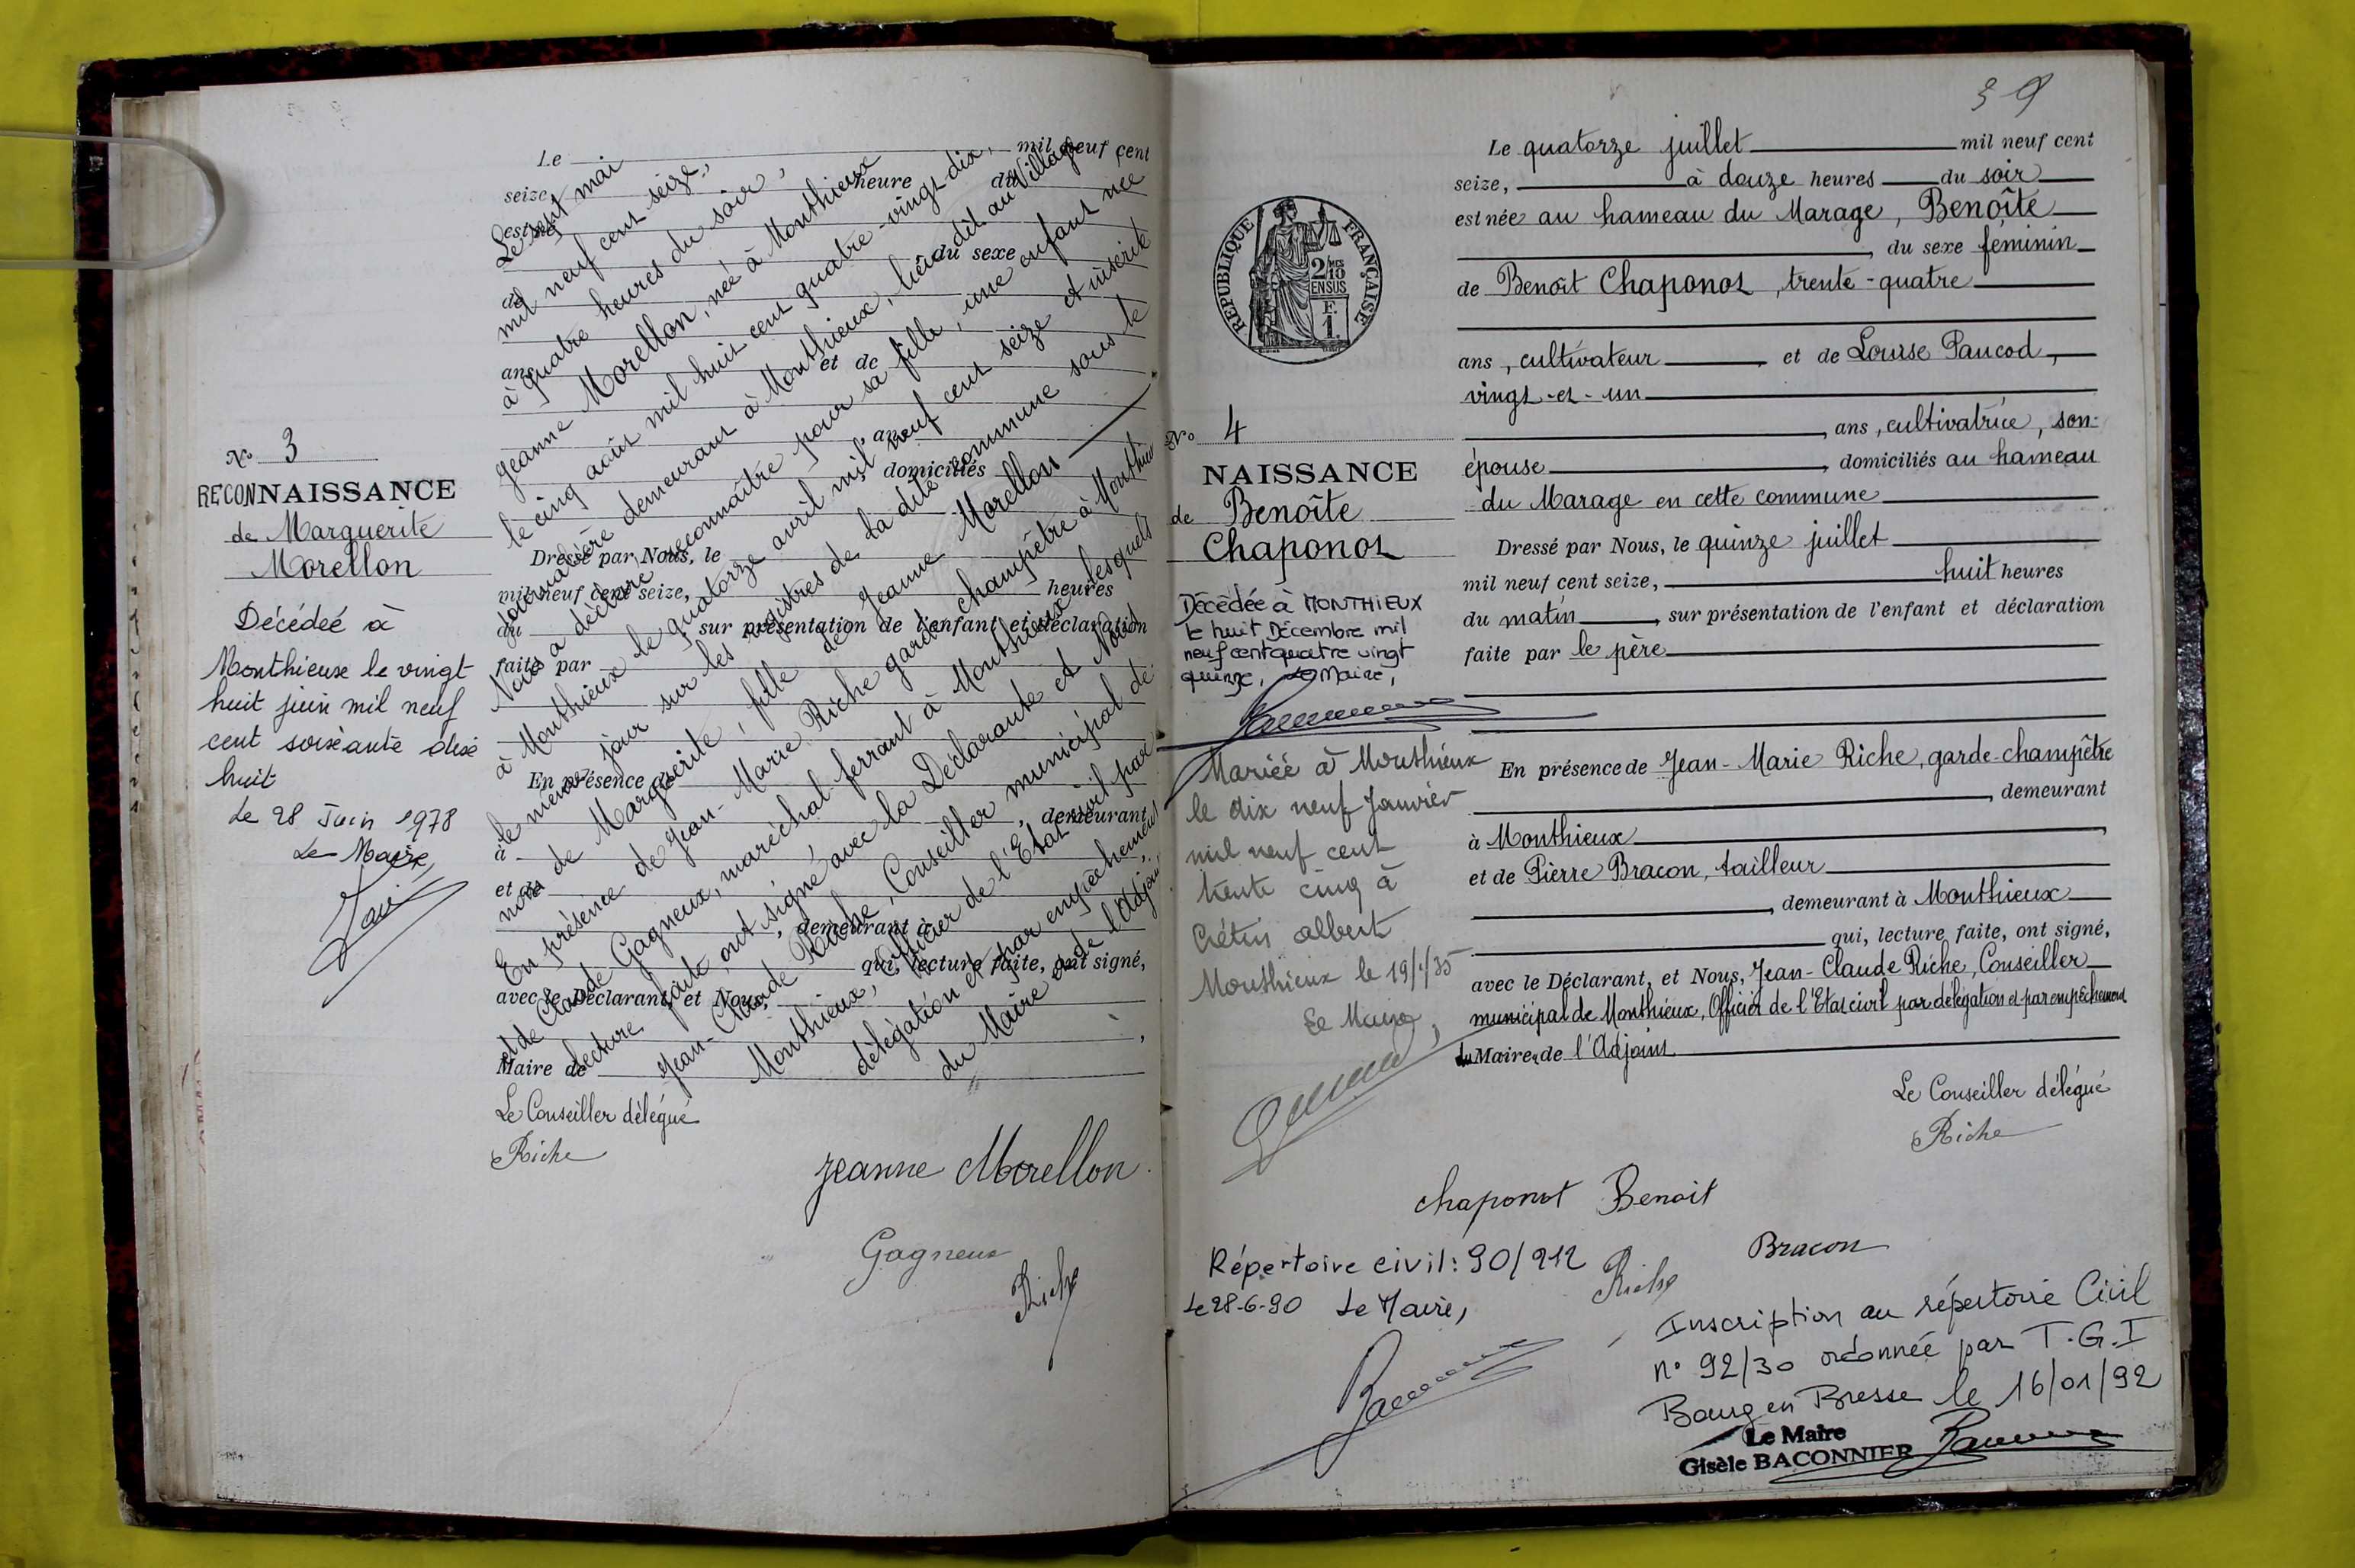 Le mil neuf cent
seize, heure du
est né
du sexe
de
ans et de
ans
domiciliés
Dressé par Nous, le
mil neuf cent seize, heures
du , sur présentation de l'enfant et déclaration
faite par
En présence de
, demeurant
à
et de
, demeurant à
qui, lecture faite, ont signé,
avec le Déclarant, et Nous,
Maire de
Le sept mai
mil neuf cent seize,
à quatre heures du soir,
Jeanne Morellon, née à Monthieux
le cinq août mil huit cent quatre-vingt-dix,
journalière demeurant à Monthieux, lieu dit au Village
Nous a déclaré reconnaître pour sa fille, une enfant née
à Monthieux le quatorze avril mil neuf cent seize et inscrite
le même jour sur les registres de la dite commune sous le
nom de Marguerite, fille de Jeanne Morellon
En présence de Jean-Marie Riche garde champêtre à Monthieux
et de Claude Gagneux, maréchal-ferrant à Monthieux lesquels
lecture faite, ont signé avec la Déclarante et Nous
Jean-Claude Riche, Conseiller municipal de
Monthieux, Officier de l'Etat civil par
délégation et par empêchement
du Maire et de l'Adjoint
N° 3
RECONNAISSANCE
de Marguerite
Morellon
Décédée à
Monthieux le vingt
huit juin mil neuf
cent soixante dix
huit
Le 28 Juin 1978
Le Maire,
Le Conseiller délégué
Riche
Jeanne Morellon
Gagneux
Riche
39
RÉPUBLIQUE FRANÇAISE
2/10
EN SUS
F.
1.
N° 4
NAISSANCE
de Benoîte
Chaponot
Décédée à MONTHIEUX
le huit Décembre mil
neuf cent quatre vingt
quinze, Le Maire,
Mariée à Monthieux
le dix neuf Janvier
mil neuf cent
trente cinq à
Crétin albert
Monthieux le 19/1/35
Le Maire,
Le quatorze juillet mil neuf cent
seize, à douze heures du soir
est née au hameau du Marage, Benoîte
, du sexe féminin
de Benoît Chaponot, trente-quatre
ans, cultivateur et de Louise Paucod,
vingt-et-un
, ans, cultivatrice, son
épouse , domiciliés au hameau
du Marage en cette commune
Dressé par Nous, le quinze juillet
mil neuf cent seize, huit heures
du matin , sur présentation de l'enfant et déclaration
faite par le père
En présence de Jean-Marie Riche, garde-champêtre
, demeurant
à Monthieux
et de Pierre Bracon, tailleur
, demeurant à Monthieux
qui, lecture faite, ont signé,
avec le Déclarant, et Nous, Jean-Claude Riche, Conseiller
municipal de Monthieux, Officier de l'Etat civil par délégation et par empêchement
du Maire, de l'Adjoint
Le Conseiller délégué
Riche
chaponot Benoit
Bracon
Riche
Répertoire civil : 90/212
Le 28-6-90 Le Maire,
Inscription au répertoire Civil
n° 92/30 ordonnée par T.G.I
Bourg en Bresse le 16/01/92
Le Maire
Gisèle BACONNIER